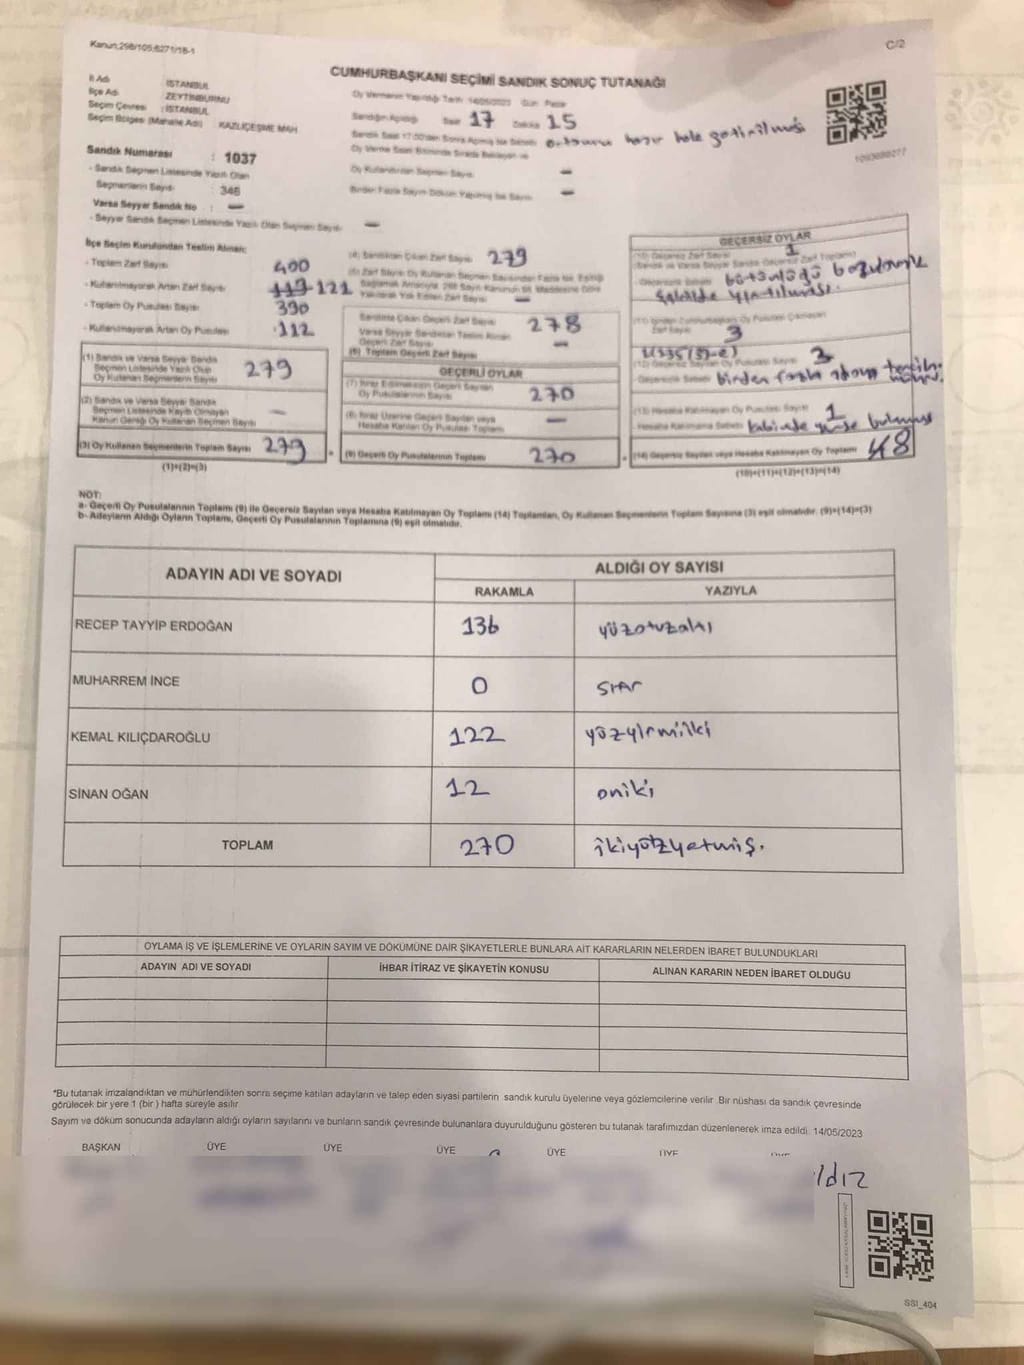 Kanun;298/105;6271/18-1
C/2
CUMHURBAŞKANI SEÇİMİ SANDIK SONUÇ TUTANAĞI
İl Adı : İSTANBUL
İlçe Adı : ZEYTİNBURNU
Seçim Çevresi : İSTANBUL
Seçim Bölgesi (Mahalle Adı) : KAZLIÇEŞME MAH
Oy Vermenin Yapıldığı Tarih 14/05/2023 Gün Pazar
Sandığın Açıldığı Saat 17 Dakika 15
Sandık Saat 17:00'den Sonra Açılmış İse Sebebi ortamın hazır hale getirilmesi
Oy Verme Saati Bitiminde Sırada Bekleyen ve
Oy Kullandırılan Seçmen Sayısı —
Birden Fazla Sayım Döküm Yapılmış İse Sayısı —
Sandık Numarası : 1037
- Sandık Seçmen Listesinde Yazılı Olan
Seçmenlerin Sayısı : 346
Varsa Seyyar Sandık No : —
- Seyyar Sandık Seçmen Listesinde Yazılı Olan Seçmen Sayısı —
İlçe Seçim Kurulundan Teslim Alınan:
- Toplam Zarf Sayısı 400
- Kullanılmayarak Artan Zarf Sayısı 119-121
- Toplam Oy Pusulası Sayısı 390
- Kullanılmayarak Artan Oy Pusulası 112
(4) Sandıktan Çıkan Zarf Sayısı 279
(5) Zarf Sayısı Oy Kullanan Seçmen Sayısından Fazla ise, Eşitliği
Sağlamak Amacıyla, 298 Sayılı Kanunun 98. Maddesine Göre
Yakılarak Yok Edilen Zarf Sayısı —
Sandıkta Çıkan Geçerli Zarf Sayısı 278
Varsa Seyyar Sandıktan Teslim Alınan
Geçerli Zarf Sayısı —
(6) Toplam Geçerli Zarf Sayısı
GEÇERLİ OYLAR
(7) İtiraz Edilmeksizin Geçerli Sayılan
Oy Pusulalarının Sayısı 270
(8) İtiraz Üzerine Geçerli Sayılan veya
Hesaba Katılan Oy Pusulası Toplamı —
(9) Geçerli Oy Pusulalarının Toplamı 270
(1) Sandık ve Varsa Seyyar Sandık
Seçmen Listesinde Yazılı Olup
Oy Kullanan Seçmenlerin Sayısı 279
(2) Sandık ve Varsa Seyyar Sandık
Seçmen Listesinde Kayıtlı Olmayan
Kanun Gereği Oy Kullanan Seçmen Sayısı —
(3) Oy Kullanan Seçmenlerin Toplam Sayısı 279
(1)+(2)=(3)
GEÇERSİZ OYLAR
(10) Geçersiz Zarf Sayısı 1
(Sandık ve Varsa Seyyar Sandık Geçersiz Zarf Toplamı)
Geçersizlik Sebebi bütünlüğü bozulacak
şekilde yırtılması.
(11) İçinden Cumhurbaşkanı Oy Pusulası Çıkmayan
Zarf Sayısı 3
(12) Geçersiz Sayılan Oy Pusulası Sayısı 3
Geçersizlik Sebebi birden fazla adaya tercih
(13) Hesaba Katılmayan Oy Pusulası Sayısı 1
Hesaba Katılmama Sebebi kabinde yerde bulunması
(14) Geçersiz Sayılan veya Hesaba Katılmayan Oy Toplamı 8
(10)+(11)+(12)+(13)=(14)
NOT:
a- Geçerli Oy Pusulalarının Toplamı (9) ile Geçersiz Sayılan veya Hesaba Katılmayan Oy Toplamı (14) Toplamları, Oy Kullanan Seçmenlerin Toplam Sayısına (3) eşit olmalıdır. (9)+(14)=(3)
b- Adayların Aldığı Oyların Toplamı, Geçerli Oy Pusulalarının Toplamına (9) eşit olmalıdır.
ADAYIN ADI VE SOYADI
ALDIĞI OY SAYISI
RAKAMLA YAZIYLA
RECEP TAYYİP ERDOĞAN 136 yüzotuzaltı
MUHARREM İNCE 0 sıfır
KEMAL KILIÇDAROĞLU 122 yüzyirmiiki
SİNAN OĞAN 12 oniki
TOPLAM 270 ikiyüzyetmiş.
OYLAMA İŞ VE İŞLEMLERİNE VE OYLARIN SAYIM VE DÖKÜMÜNE DAİR ŞİKAYETLERLE BUNLARA AİT KARARLARIN NELERDEN İBARET BULUNDUKLARI
ADAYIN ADI VE SOYADI İHBAR İTİRAZ VE ŞİKAYETİN KONUSU ALINAN KARARIN NEDEN İBARET OLDUĞU
*Bu tutanak imzalandıktan ve mühürlendikten sonra seçime katılan adayların ve talep eden siyasi partilerin sandık kurulu üyelerine veya gözlemcilerine verilir. Bir nüshası da sandık çevresinde
görülecek bir yere 1 (bir) hafta süreyle asılır
Sayım ve döküm sonucunda adayların aldığı oyların sayılarını ve bunların sandık çevresinde bulunanlara duyurulduğunu gösteren bu tutanak tarafımızdan düzenlenerek imza edildi. 14/05/2023
BAŞKAN ÜYE ÜYE ÜYE ÜYE ÜYE
SSI_404